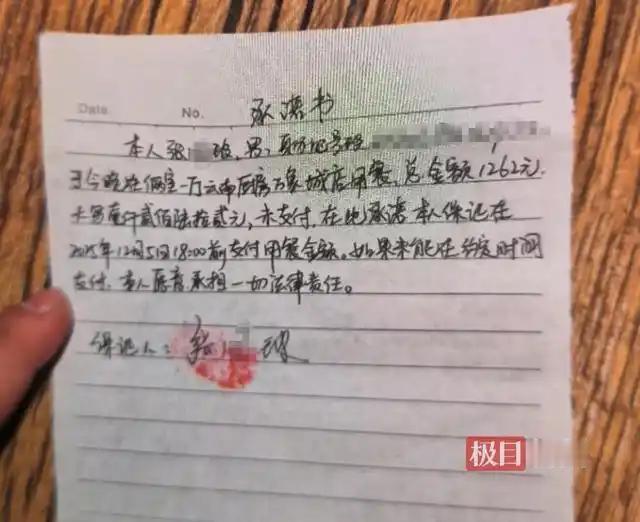 Date. No. 承诺书
本人张 珀,男,身份证号码
于今晚在俩室一厅云南厨房万象城店用餐,总金额1262元.
大写壹仟贰佰陆拾贰元,未支付,在此承诺本人保证在
2025年12月5日18:00前支付用餐金额。如果未能在约定时间
支付,本人愿意承担一切法律责任。
保证人:张
极目